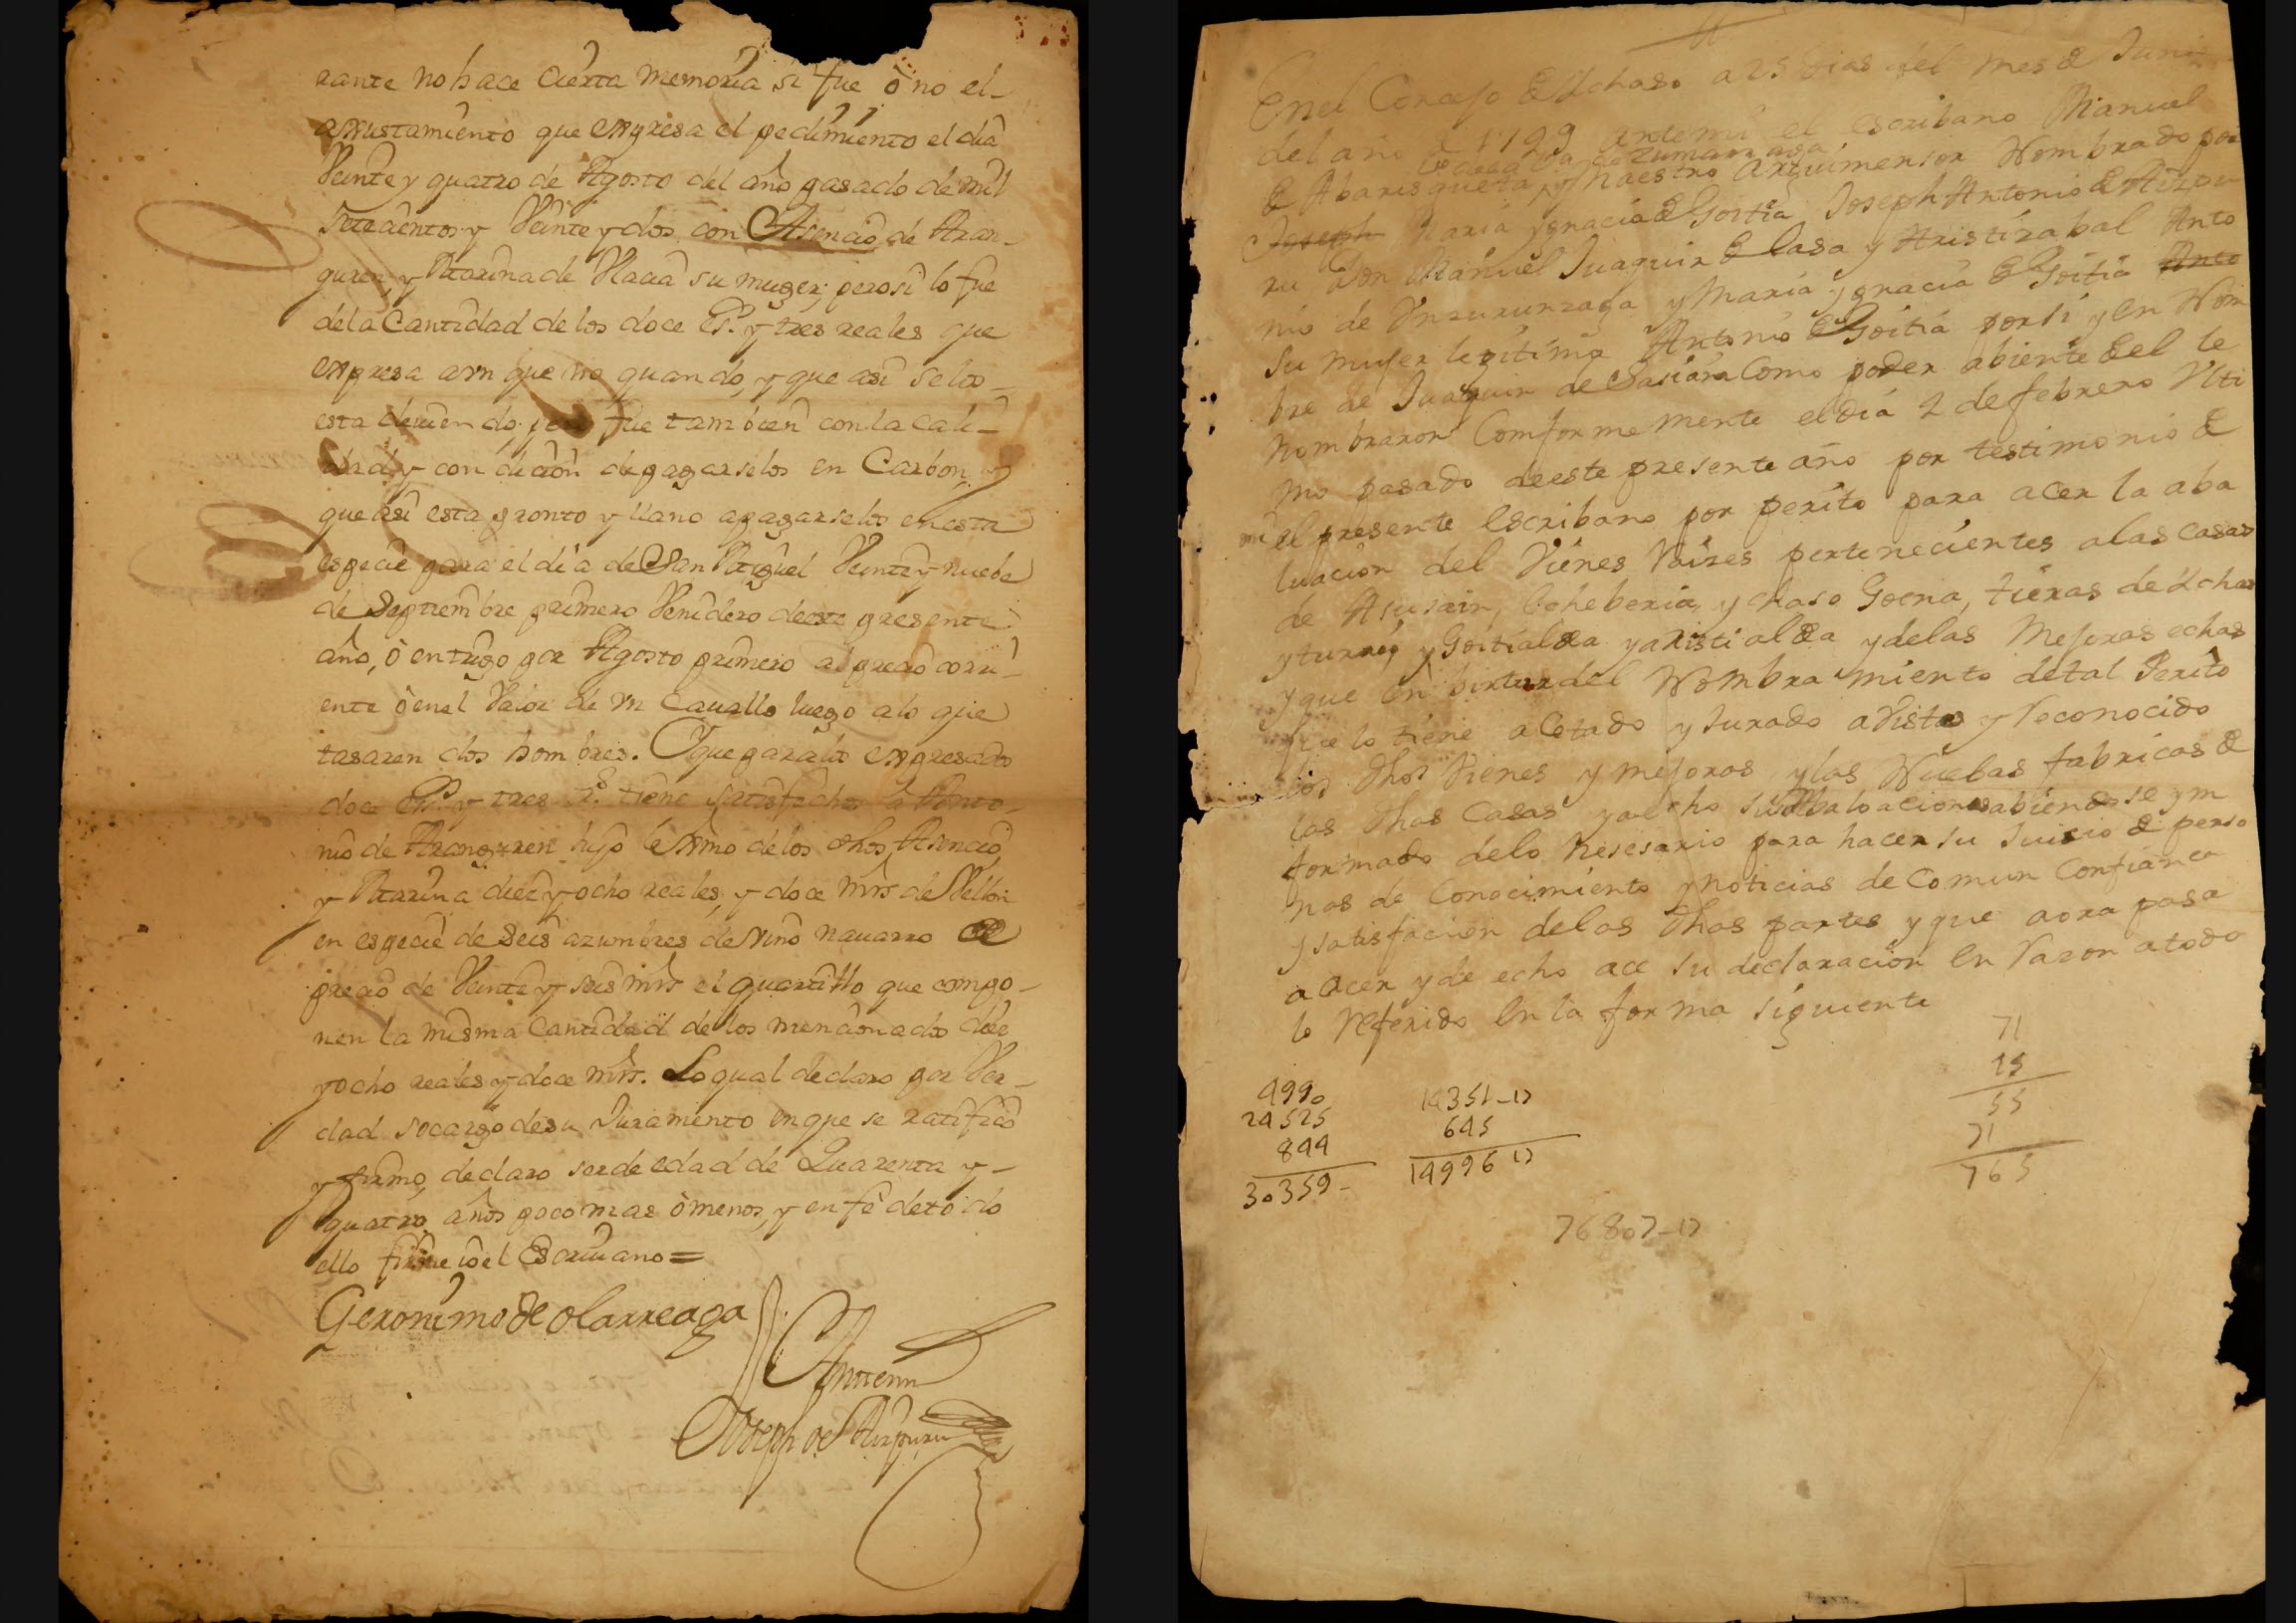 rante no hace cierta memoria si fue ò no el-
ajustamiento que expresa el pedimiento el dia
Veinte y quatro de Agosto del año pasado de mil
setecientos y Veinte y dos con Asencio de Aran-
guren, y Marina de su muger; pero si lo fue
de la Cantidad de los doce Ps. y tres reales que
expresa aun que no quando, y que asi se los-
esta deuiendo pero fue tambien con la cali-
dad y con dicion de pagarselos en Carbon y
que asi esta pronto y llano a pagarselos en esta
especie para el dia de San Miguel Veinte y nuebe
de Septiembre primero Venidero deste presente
año, ò en trigo por Agosto primero al precio corri-
ente ò en el Valor de vn Cauallo luego a lo que
tasaren dos hombres. Y que para los expresados
doce Ps. y tres rs. tiene satisfechos a Anto-
nio de Aranguren hijo lexmo de los dhos Asencio,
y Marina diez y ocho reales, y doce mrs de Vellon
en especie de seis azumbres de vino nauarro
precio de Veinte y seis mrs el quartillo que compo-
nen la misma Cantidad de los mencionados diez
y ocho reales y doce mrs. Lo qual declaro por Ver-
dad socargo de su Juramento en que se ratifico
y firmo, declaro ser de edad de Quarenta y-
quatro años poco mas òmenos, y en fe de todo
ello firme io el Escriuano=
Geronimo de Olarreaga
Antemi
Joseph de Aizpuru
En el Concejo de Ichaso a 25 dias del mes de Juni
del año de 1799 antemi el escribano Manuel
de la Va. de Zumarraga
de Abarisqueta, y Maestro Arquimensor Nombrado por
Joseph Maria ygnacia de Goitia, Joseph Antonio de Aizpu
ru Don Manuel Juaquin de Lasa y Aristizabal Anto
nio de Ynzurunzaga y Maria ygnacia de Goitia Anto
su muger legitima Antonio de Goitia por si y en Nom
bre de Juaquin de Sasiain Como poder abiente del se
nombraron Comformemente el dia 2 de febrero Ulti
mo pasado deeste presente año por testimonio de
mi el presente escribano por perito para acer la aba
luacion del Vienes Raizes pertenecientes a las casas
de Asusain, Echeberia, y chaso Goena, tieras de Ichas
y Goitialdea yaristialdea y delas Mejoras echas
y que en birtur del Nombramiento detal Perito
que lo tiene acetado y Jurado a Visto y Reconocido
los dhos Vienes y mejoras y las Nuebas fabricas de
las dhas Casas yaecho su Abaloacion abiendose yn
formado delo Nesesario para hacer su Juicio de perso
nas de Conocimiento y noticias de Comun Confianca
y satisfacion delas dhas partes y que aora pasa
a acer y de echo ace su declaracion en Razon a todo
lo referido en la forma siguiente
71
15
55
71
765
4990
24525
844
30359-
14351-17
645
14996 17
76807-17